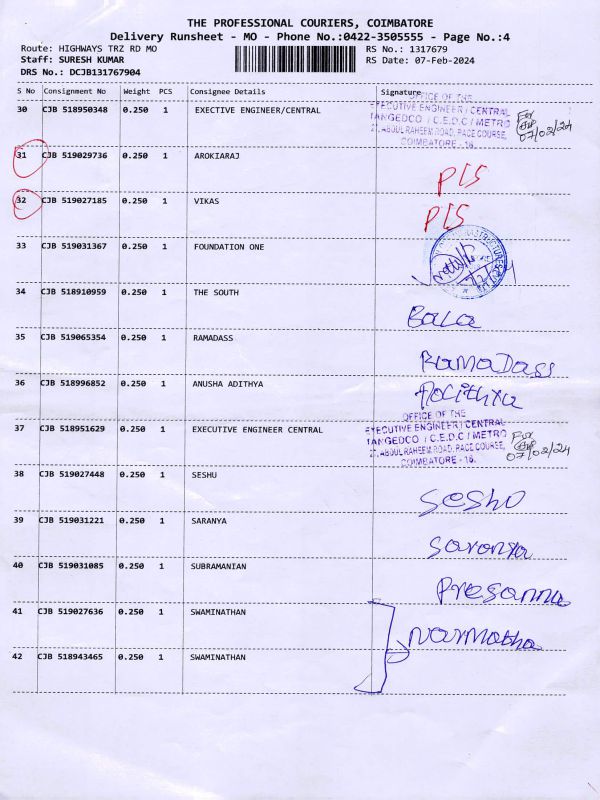 THE PROFESSIONAL COURIERS, COIMBATORE
Delivery Runsheet - MO - Phone No.:0422-3505555 - Page No.:4
Route: HIGHWAYS TRZ RD MO
RS No.: 1317679
Staff: SURESH KUMAR
RS Date: 07-Feb-2024
DRS No.: DCJB131767904
S No Consignment No Weight PCS Consignee Details Signature
30 CJB 518950348 0.250 1 EXECTIVE ENGINEER/CENTRAL
OFFICE OF THE
EXECUTIVE ENGINEER / CENTRAL
TANGEDCO / C.E.D.C / METRO
ABDUL RAHEEM ROAD, RACE COURSE,
COIMBATORE - 18.
07/02/24
31 CJB 519029736 0.250 1 AROKIARAJ
32 CJB 519027185 0.250 1 VIKAS
33 CJB 519031367 0.250 1 FOUNDATION ONE
34 CJB 518910959 0.250 1 THE SOUTH Bala
35 CJB 519065354 0.250 1 RAMADASS RamaDass
36 CJB 518996852 0.250 1 ANUSHA ADITHYA
37 CJB 518951629 0.250 1 EXECUTIVE ENGINEER CENTRAL
OFFICE OF THE
EXECUTIVE ENGINEER / CENTRAL
TANGEDCO / C.E.D.C / METRO
ABDUL RAHEEM ROAD, RACE COURSE,
COIMBATORE - 18.
07/02/24
38 CJB 519027448 0.250 1 SESHU
39 CJB 519031221 0.250 1 SARANYA Saranya
40 CJB 519031085 0.250 1 SUBRAMANIAN Presanna
41 CJB 519027636 0.250 1 SWAMINATHAN Narmatha
42 CJB 518943465 0.250 1 SWAMINATHAN